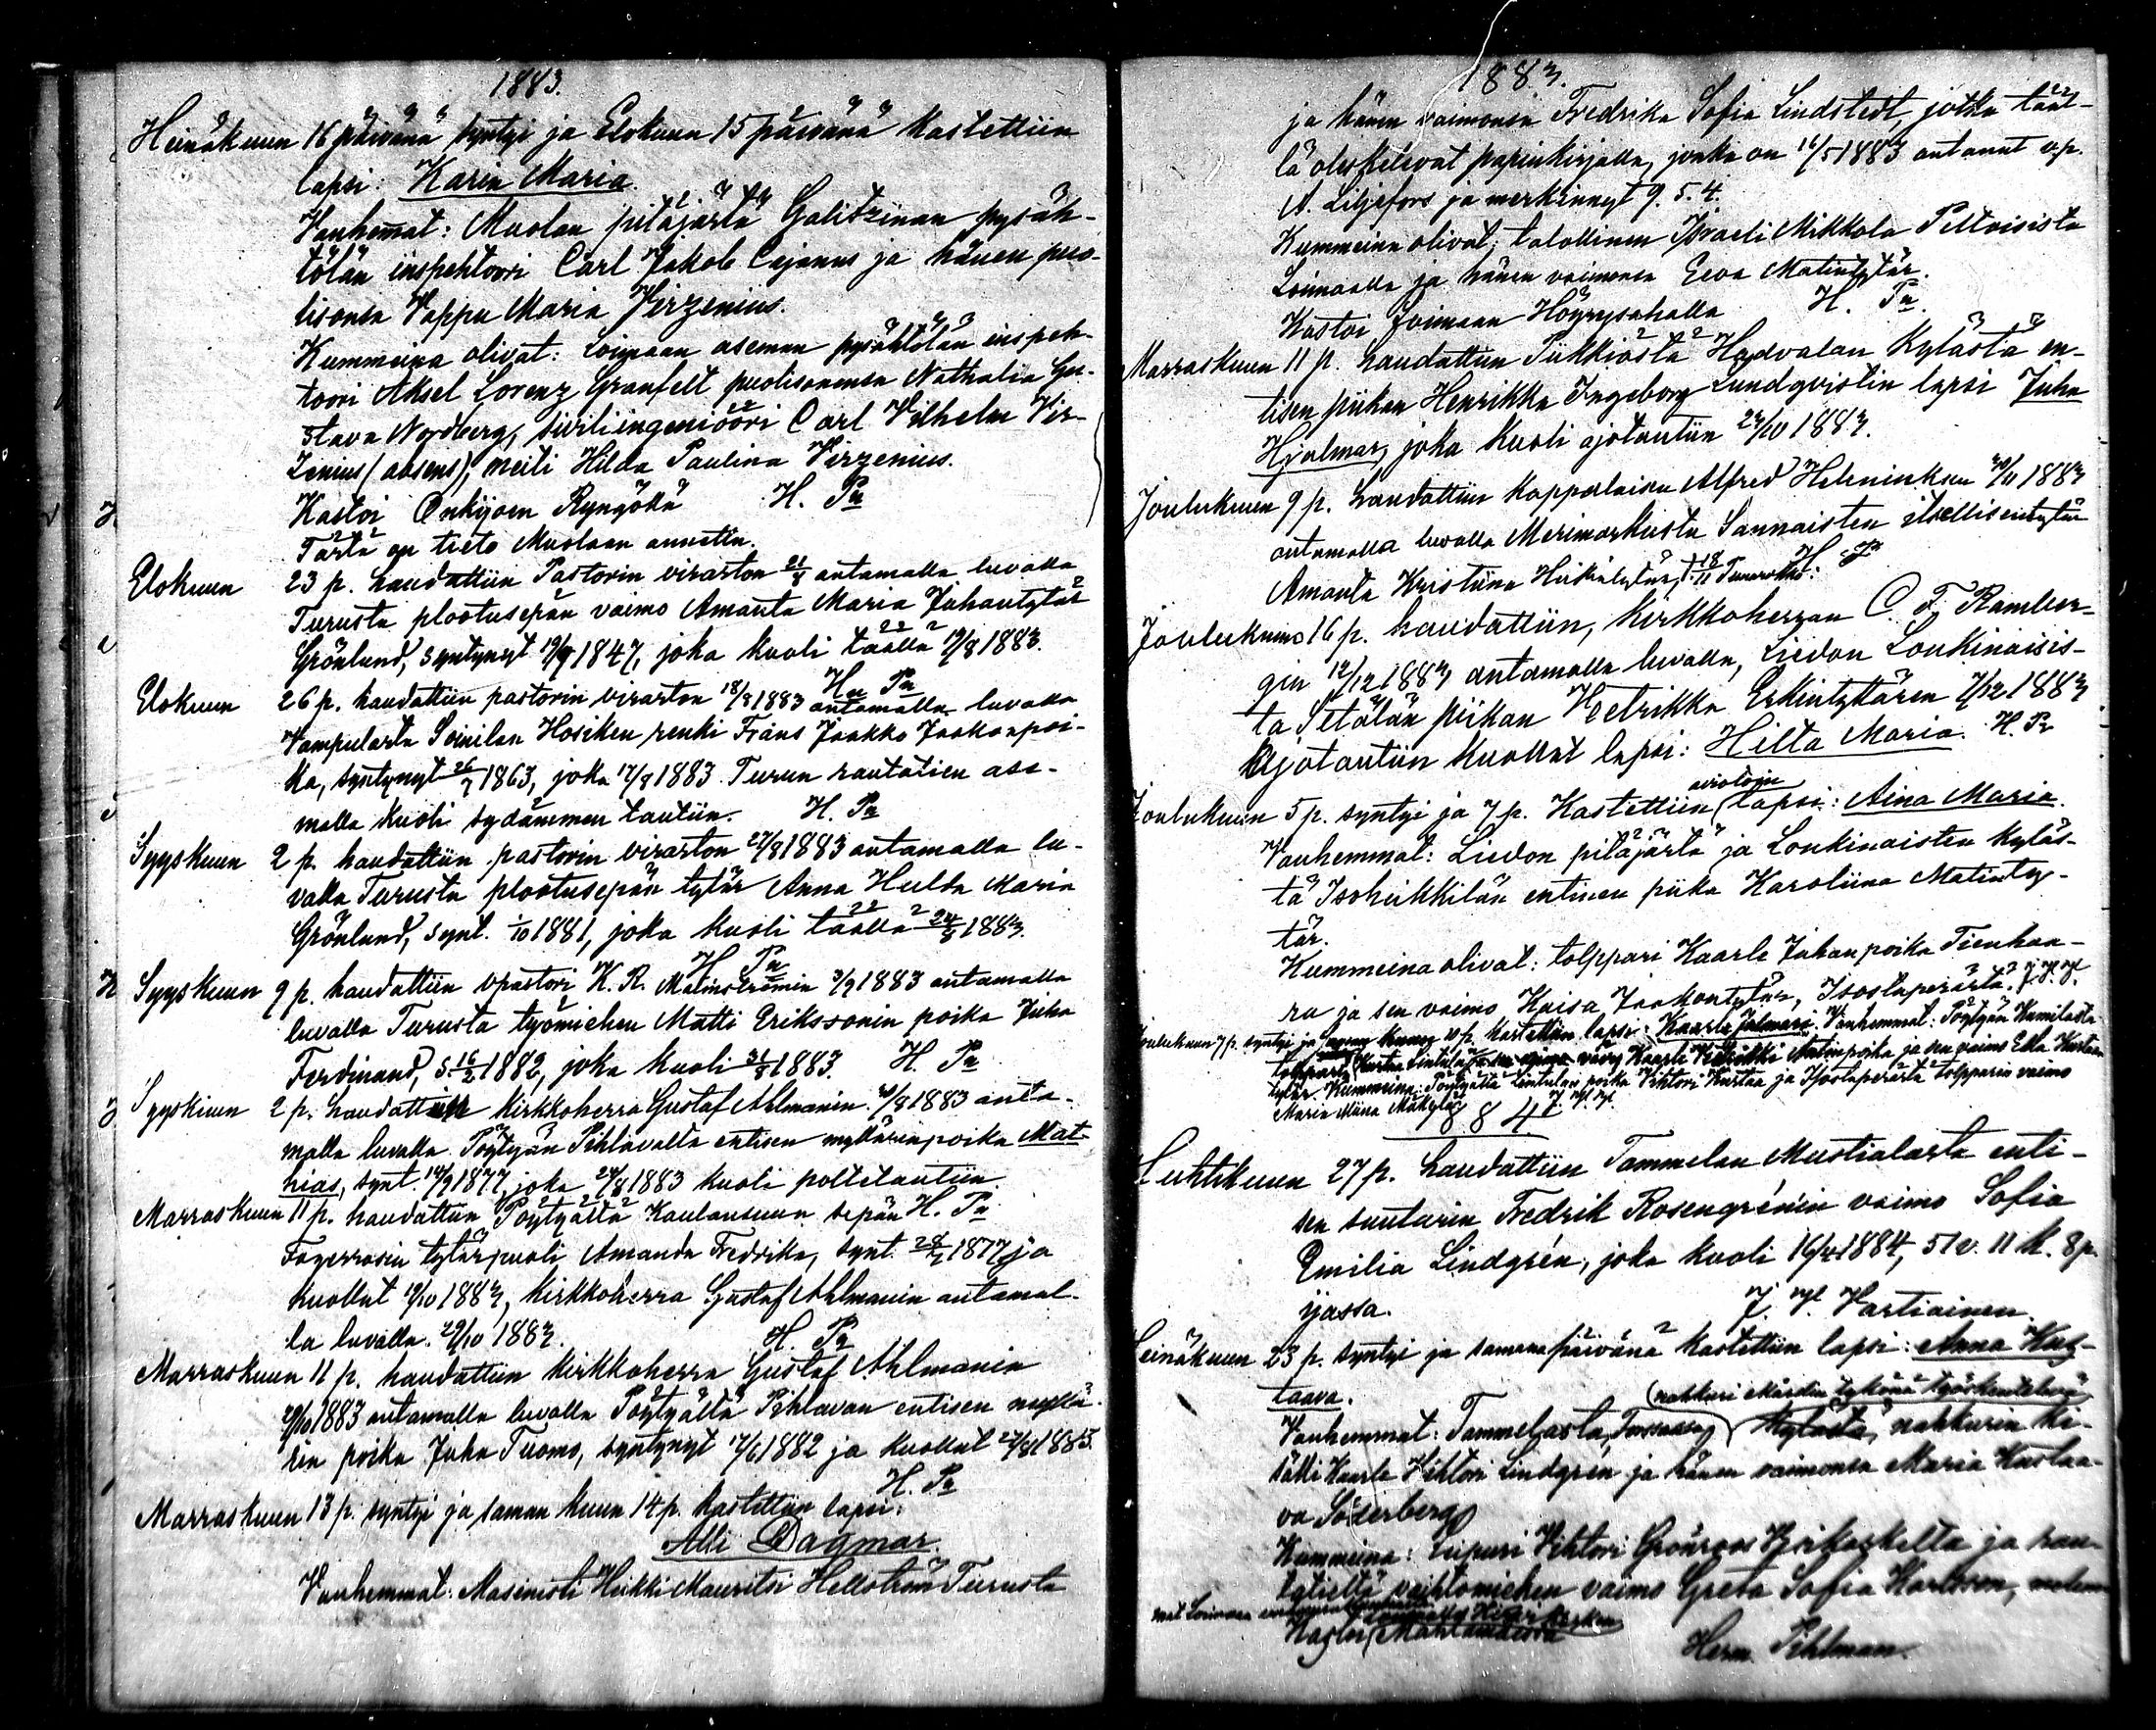 1883.
Heinäkuun 16 päivänä syntyi ja Elokuun 15 päivänä kastettiin
lapsi: Karin Maria.
Vanhemat: Muolan pitäjästä Galitzinan pysäh-
tölän inspehtoori Carl Jakob Cajanus ja hänen puo-
lisonsa Vappu Maria Virzenius.
Kummeina olivat: Loimaan aseman pysähtölän inspeh-
toori Aksel Lorenz Granfelt puolisonensa Nathalia Gu-
stava Nordberg, siviliingeniööri Carl Vilhelm Vir-
zenius (absens), neiti Hilda Paulina Virzenius.
Kastoi Onkijoen Ryngöllä H. Pn
Tästä on tieto Muolaan annettu.
Elokuun 23 p. haudattiin Pastorin viraston 21/8 antamalla luvalla
Turusta plootusepän vaimo Amanta Maria Juhantytär
Grönlund, syntynyt 1847, joka kuoli täällä 19/8 1883.
H. Pn
Elokuun 26 p. haudattiin pastorin viraston 18/8 1883 antamalla luvalla
Vampulasta Soinilan Hosiken renki Frans Jaakko Jaakonpoi-
ka, syntynyt 26/7 1863, joka 17/8 1883 Turun rautatien ase-
malla kuoli sydämmen tautiin. H. Pn
Syyskuun 2 p. haudattiin pastorin viraston 27/8 1883 antamalla lu-
valla Turusta plootusepän tytär Anna Hulda Maria
Grönlund, synt. 1/10 1881, joka kuoli täällä 24/8 1883.
H. Pn
Syyskuun 9 p. haudattiin vpastori K. R. Malmströmin 3/9 1883 antamalla
luvalla Turusta työmiehen Matti Erikssonin poika Juha
Ferdinand, s. 16/2 1882, joka kuoli 31/8 1883. H. Pn
Syyskuun 2 p. haudattiin kirkkoherra Gustaf Ahlmanin 30/8 1883 anta-
malla luvalla Pöytyän Pihlavalta entisen myllärin poika Mat-
hias, synt. 14/9 1877, joka 24/8 1883 kuoli polttotautiin.
Marraskuun 11 p. haudattiin Pöytyältä Kaulansuun sepän H. Pn
Fagerrosin tytärpuoli Amanda Fredrika, synt. 28/7 1877 ja
kuollut 1883, kirkkoherra Gustaf Ahlmanin antamal-
la luvalla 29/10 1883. H. Pn
Marraskuun 11 p. haudattiin kirkkoherra Gustaf Ahlmanin
29/10 1883 antamalla luvalla Pöytyältä Pihlavan entisen myllä-
rin poika Juha Tuomo, syntynyt 17/6 1882 ja kuollut 27/8 1883.
H. Pn
Marraskuun 13 p. syntyi ja saman kuun 14 p. kastettiin lapsi:
Alli Dagmar.
Vanhemmat: Masinisti Heikki Mauritsi Hellström Turusta
1883.
ja hänen vaimonsa Fredrika Sofia Lindstedt, jotka tääl-
lä oleskelevat papinkirjalla, jonka on 16/5 1883 antanut v.p.
A. Liljefors ja merkinnyt 9. 5. 4.
Kummeina olivat: talollinen Israeli Mikkola Peltoisista
Loimaalla ja hänen vaimonsa Eeva Matintytär.
Kastoi Loimaan Höyrysahalla H. Pn.
Marraskuun 11 p. haudattiin Piikkiöstä Hadvalan kylästä en-
tisen piikan Henrikka Ingeborg Lundqvistin lapsi Juha
Hjalmar, joka kuoli ajotautiin 1883.
Joulukuun 9 p. haudattiin kappalaisen Alfred Heleniuksen 1883
antamalla luvalla Merimaskusta Sannaisten itsellisentytär
Amanta Kristiina Heikintytär, † 18/11 H. Pn
Joulukuun 16 p. haudattiin, kirkkoherran C. F. Rambber-
gin 12/12 1883 antamalla luvalla, Liedon Loukinaisis-
ta Setälän piikan Hetrikka Erkintyttären 7/12 1883
ajotautiin kuollut lapsi: Hilta Maria. H. Pn
aviotoin
Joulukuun 5 p. syntyi ja 7 p. kastettiin lapsi: Aina Maria.
Vanhemmat: Liedon pitäjästä ja Loukinaisten kyläs-
tä Isoheikkilän entinen piika Karoliina Matinty-
tär.
Kummeina olivat: tolppari Kaarle Juhanpoika Tienhaa-
ra ja sen vaimo Kaisa Jaakontytär, Isostaperästä. J. W. W.
Joulukuun 7 p. syntyi ja 10 p. kastettiin lapsi: Kaarle Jalmari. Vanhemmat: Pöytyän Kumilasta
Kustaa Lintula vävy Kaarle Matinpoika ja sen vaimo Eva Kustaan
tytär. Kummeina: Pöytyältä Lintulan poika Vihtori Kustaa ja Isostaperästä tolpparin vaimo
Maria Miina Mäkylä J. W. W.
1884
Huhtikuun 27 p. haudattiin Tammelan Mustialasta enti-
sen suutarin Fredrik Rosengrénin vaimo Sofia
Emilia Lindgrén, joka kuoli 16/4 1884, 51 v. 11 k. 8 p.
ijässä. J. W. Hartiainen.
Heinäkuun 23 p. syntyi ja samana päivänä kastettiin lapsi: Anna Kus-
taava.
(nahkuri tykönä työskentelevä)
Vanhemmat: Tammelasta, Forssassa kylästä, nahkurin ki-
sälli Kaarle Vihtori Lindgrén ja hänen vaimonsa Maria Kustaa-
va Söderberg
Kummeina: Lupuri Vihtori Grönroos Yrikoskelta ja rau-
tatieltä vaihtomiehen vaimo Greta Sofia Karlsson, molem-
mat Loimaan
Kastoi
Herm. Pihlman.